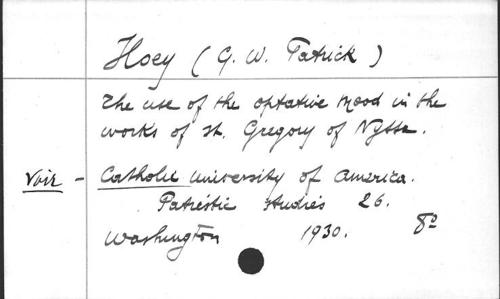 Hoey (G. W. Patrick)
The use of the optative mood in the
works of St. Gregory of Nyssa.
Voir - Catholic University of America.
Patristic Studies 26.
Washington 1930. 8º